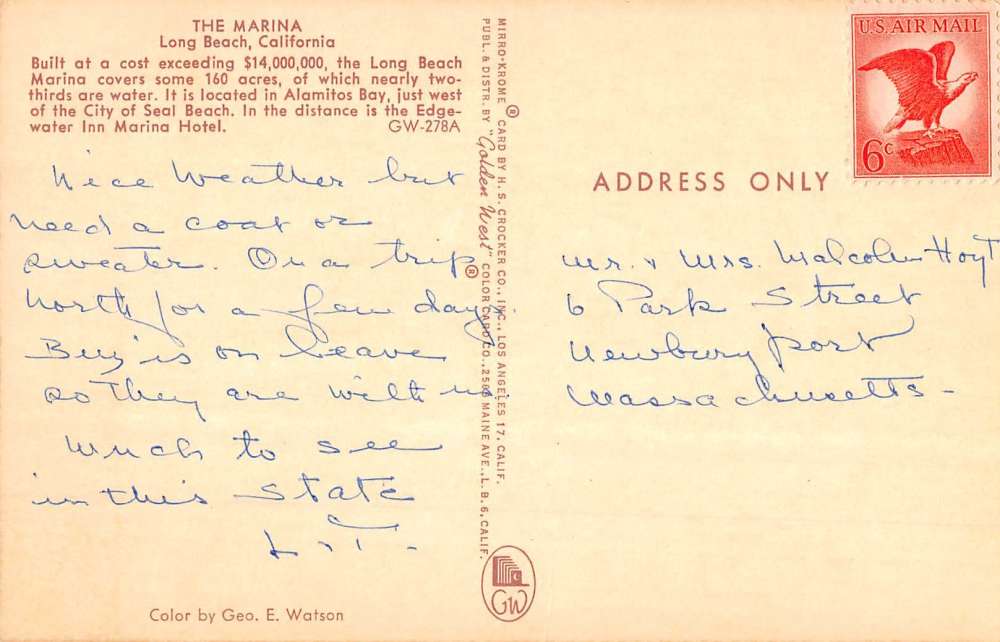 THE MARINA
Long Beach, California
Built at a cost exceeding $14,000,000, the Long Beach
Marina covers some 160 acres, of which nearly two-
thirds are water. It is located in Alamitos Bay, just west
of the City of Seal Beach. In the distance is the Edge-
water Inn Marina Hotel. GW-278A
Nice Weather but
need a coat or
sweater. On a trip
north for a few days.
is on leave
so they are with us
much to see
in this State
Color by Geo. E. Watson
MIRRO-KROME ® CARD BY H. S. CROCKER CO., INC., LOS ANGELES 17, CALIF.
PUBL. & DISTR. BY "Golden West" ® COLOR CARD CO., MAINE AVE., L. B. 6, CALIF.
GW
U.S. AIR MAIL
6c
ADDRESS ONLY
Mr. & Mrs. Malcolm Hoyt
6 Park Street
Newburyport
Massachusetts-